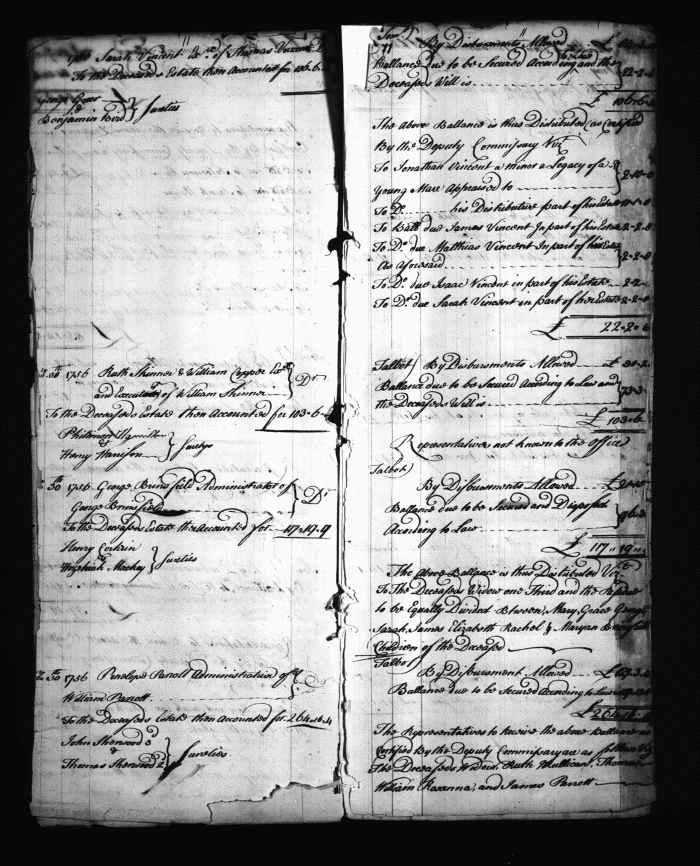 1756 Sarah Vincent Exx. of Thomas Vincent
To the Deceaseds Estate then Accounted for 106.6.
George
&
Benjamin Bird } Sureties
1756 Ruth Skinner & William Cepper Exx
and Executor of William Skinner } Dr
To the Deceaseds Estate then Accounted for 103.6
Philemon Hamilton
&
Henry Harrison } Suretys
30 1756 George Brinsfield Administrator of
George Brinsfield } Dr
To the Deceaseds Estate then Accounted for 17.19.9
Henry
&
Mackey } Sureties
1756 Penelope Parrott Administratrix of
William Parrott
To the Deceaseds Estate then Accounted for 264.16.4
John Sherwood
&
Thomas Sherwood } Sureties
By Disbursments Allowed £
Ballance due to be Secured According to Law and the
Deceaseds Will is 22.2.
£ 106.6.
The Above Ballance is thus Distributed (as Certified
By the Deputy Commissary Vizt.
To Jonathan Vincent a minor a Legacy of a
Young Mare Appraised to 2.10.0
To Do. his Distributive part of his Estate
To Ball. due James Vincent In part of his Estate 2.2.
To Do. due Matthias Vincent In part of his Estate
As Aforesaid 2.2.
To Do. due Isaac Vincent in part of his Estate 2.2.
To Do. due Sarah Vincent in part of her Estate 2.2.
£ 22.2.6
Talbot) By Disbursments Allowed £ 30.2.
Ballance due to be Secured Acording to Law and
the Deceaseds Will is 73.3
£ 103.6.
Representatives not known to the Office
Talbot)
By Disbursments Allowed £
Ballance due to be Secured and Disposed
According to Law
£ 17 " 19 "
The Above Ballance is thus Distributed Vizt
To The Deceaseds Widow one Third and the
to be Equally Divided Between, Mary, Grace George
Sarah, James Elizabeth Rachel & Maryan Brinsfield
Children of the Deceased
Talbot
By Disbursment Allowed £
Ballance due to be Secured According to Law
£ 264.16.
The Representatives to Receive the above Ballance as
Certified by the Deputy Commissary are as follows Viz
The Deceaseds Widow, Ruth Mullican, Thomas
William Rosanna, and James Parrott